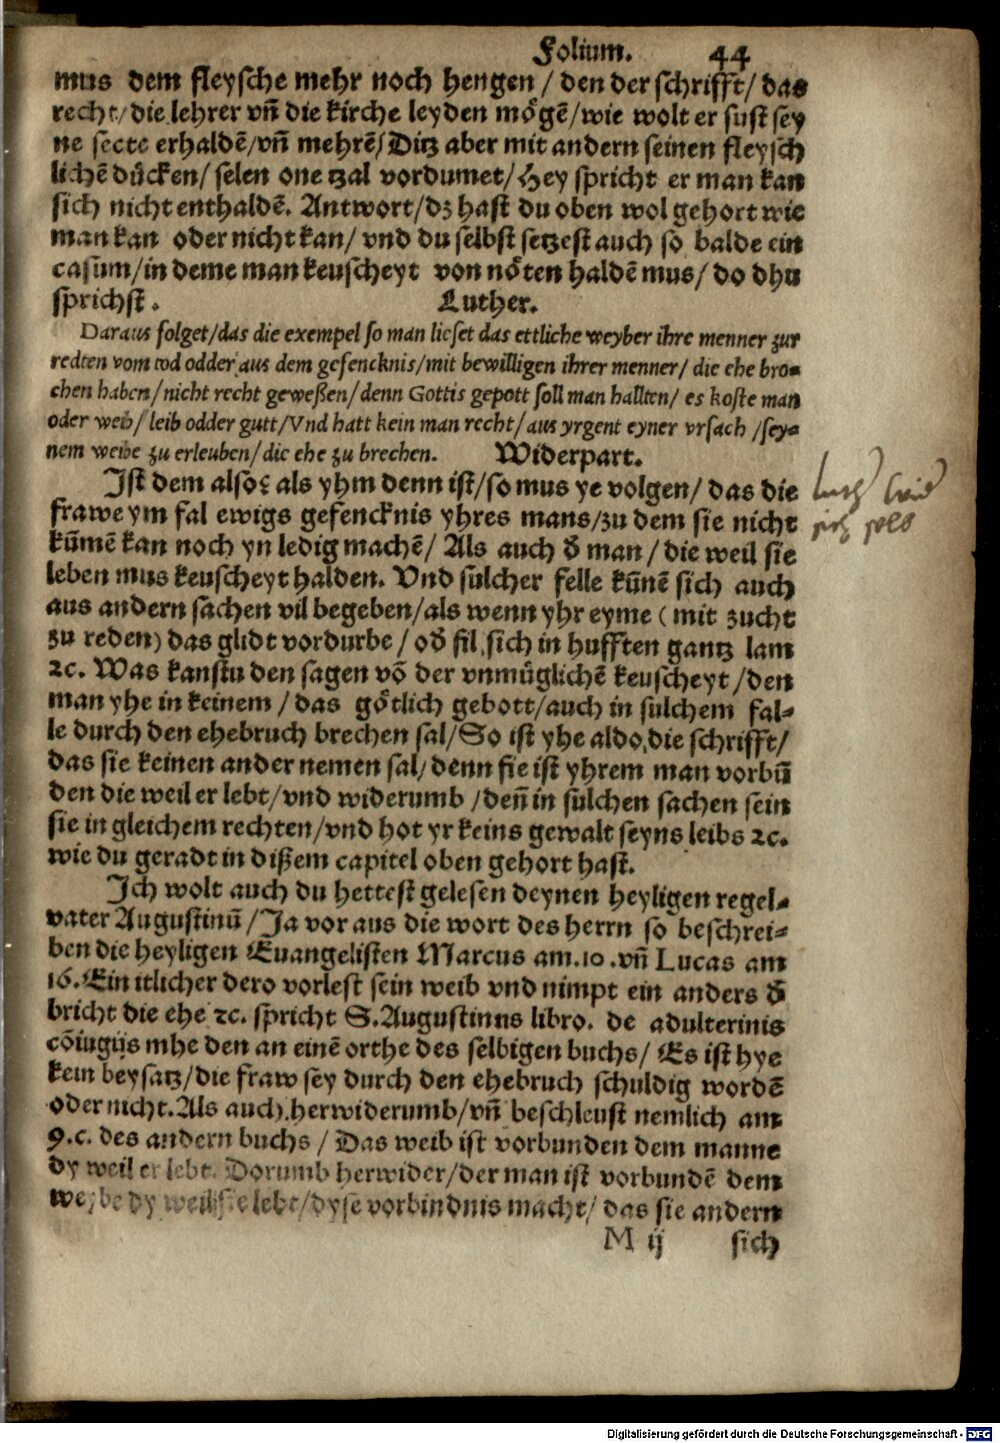 Folium. 44
mus dem fleysche mehr noch hengen / den der schrifft / das
recht / die lehrer vñ die kirche leyden mögẽ / wie wolt er sust sey
ne secte erhaldẽ / vñ mehrẽ / Ditz aber mit andern seinen fleysch
lichẽ dücken / selen one tzal vordumet / Hey spricht er man kan
sich nicht enthaldẽ. Antwort / dz hast du oben wol gehort wie
man kan oder nicht kan / vnd du selbst setzest auch so balde ein
casum / in deme man keuscheyt von nöten haldẽ mus / do dhu
sprichst. Luther.
Daraus folget / das die exempel so man lieset das ettliche weyber ihre menner zur
redten vom tod odder aus dem gefencknis / mit bewilligen ihrer menner / die ehe bro-
chen haben / nicht recht geweßen / denn Gottis gepott soll man hallten / es koste man
oder weib / leib odder gutt / Vnd hatt kein man recht / aus yrgent eyner vrsach / sey-
nem weibe zu erleuben / die ehe zu brechen. Widerpart.
Ist dem also? als yhm denn ist / so mus ye volgen / das die
frawe ym fal ewigs gefencknis yhres mans / zu dem sie nicht
kümẽ kan noch yn ledig machẽ / Als auch d̕ man / die weil sie
leben mus keuscheyt halden. Vnd sulcher felle künẽ sich auch
aus andern sachen vil begeben / als wenn yhr eyme ( mit zucht
zu reden ) das glidt vordurbe / od̕ fil sich in hufften gantz lam
ꝛc. Was kanstu den sagen võ der vnmüglichẽ keuscheyt / den
man yhe in keinem / das götlich gebott / auch in sulchem fal-
le durch den ehebruch brechen sal / So ist yhe aldo die schrifft /
das sie keinen ander nemen sal / denn sie ist yhrem man vorbũ
den die weil er lebt / vnd widerumb / deñ in sulchen sachen sein
sie in gleichem rechten / vnd hot yr keins gewalt seyns leibs ꝛc.
wie du geradt in dißem capitel oben gehort hast.
Ich wolt auch du hettest gelesen deynen heyligen regel-
vater Augustinũ / Ja vor aus die wort des herrn so beschrei-
ben die heyligen Euangelisten Marcus am. 10. vñ Lucas am
16. Ein itlicher dero vorlest sein weib vnd nimpt ein anders d̕
bricht die ehe ꝛc. spricht S. Augustinus libro. de adulterinis
cõiugijs mhe den an einẽ orthe des selbigen buchs / Es ist hye
kein beysatz / die fraw sey durch den ehebruch schuldig wordẽ
oder nicht. Als auch herwiderumb / vñ beschleust nemlich am
9. c. des andern buchs / Das weib ist vorbunden dem manne
dy weil er lebt. Dorumb herwider / der man ist vorbundẽ dem
weybe dy weil sie lebt / dyse vorbindnis macht / das sie andern
M ij sich
Digitalisierung gefördert durch die Deutsche Forschungsgemeinschaft - DFG